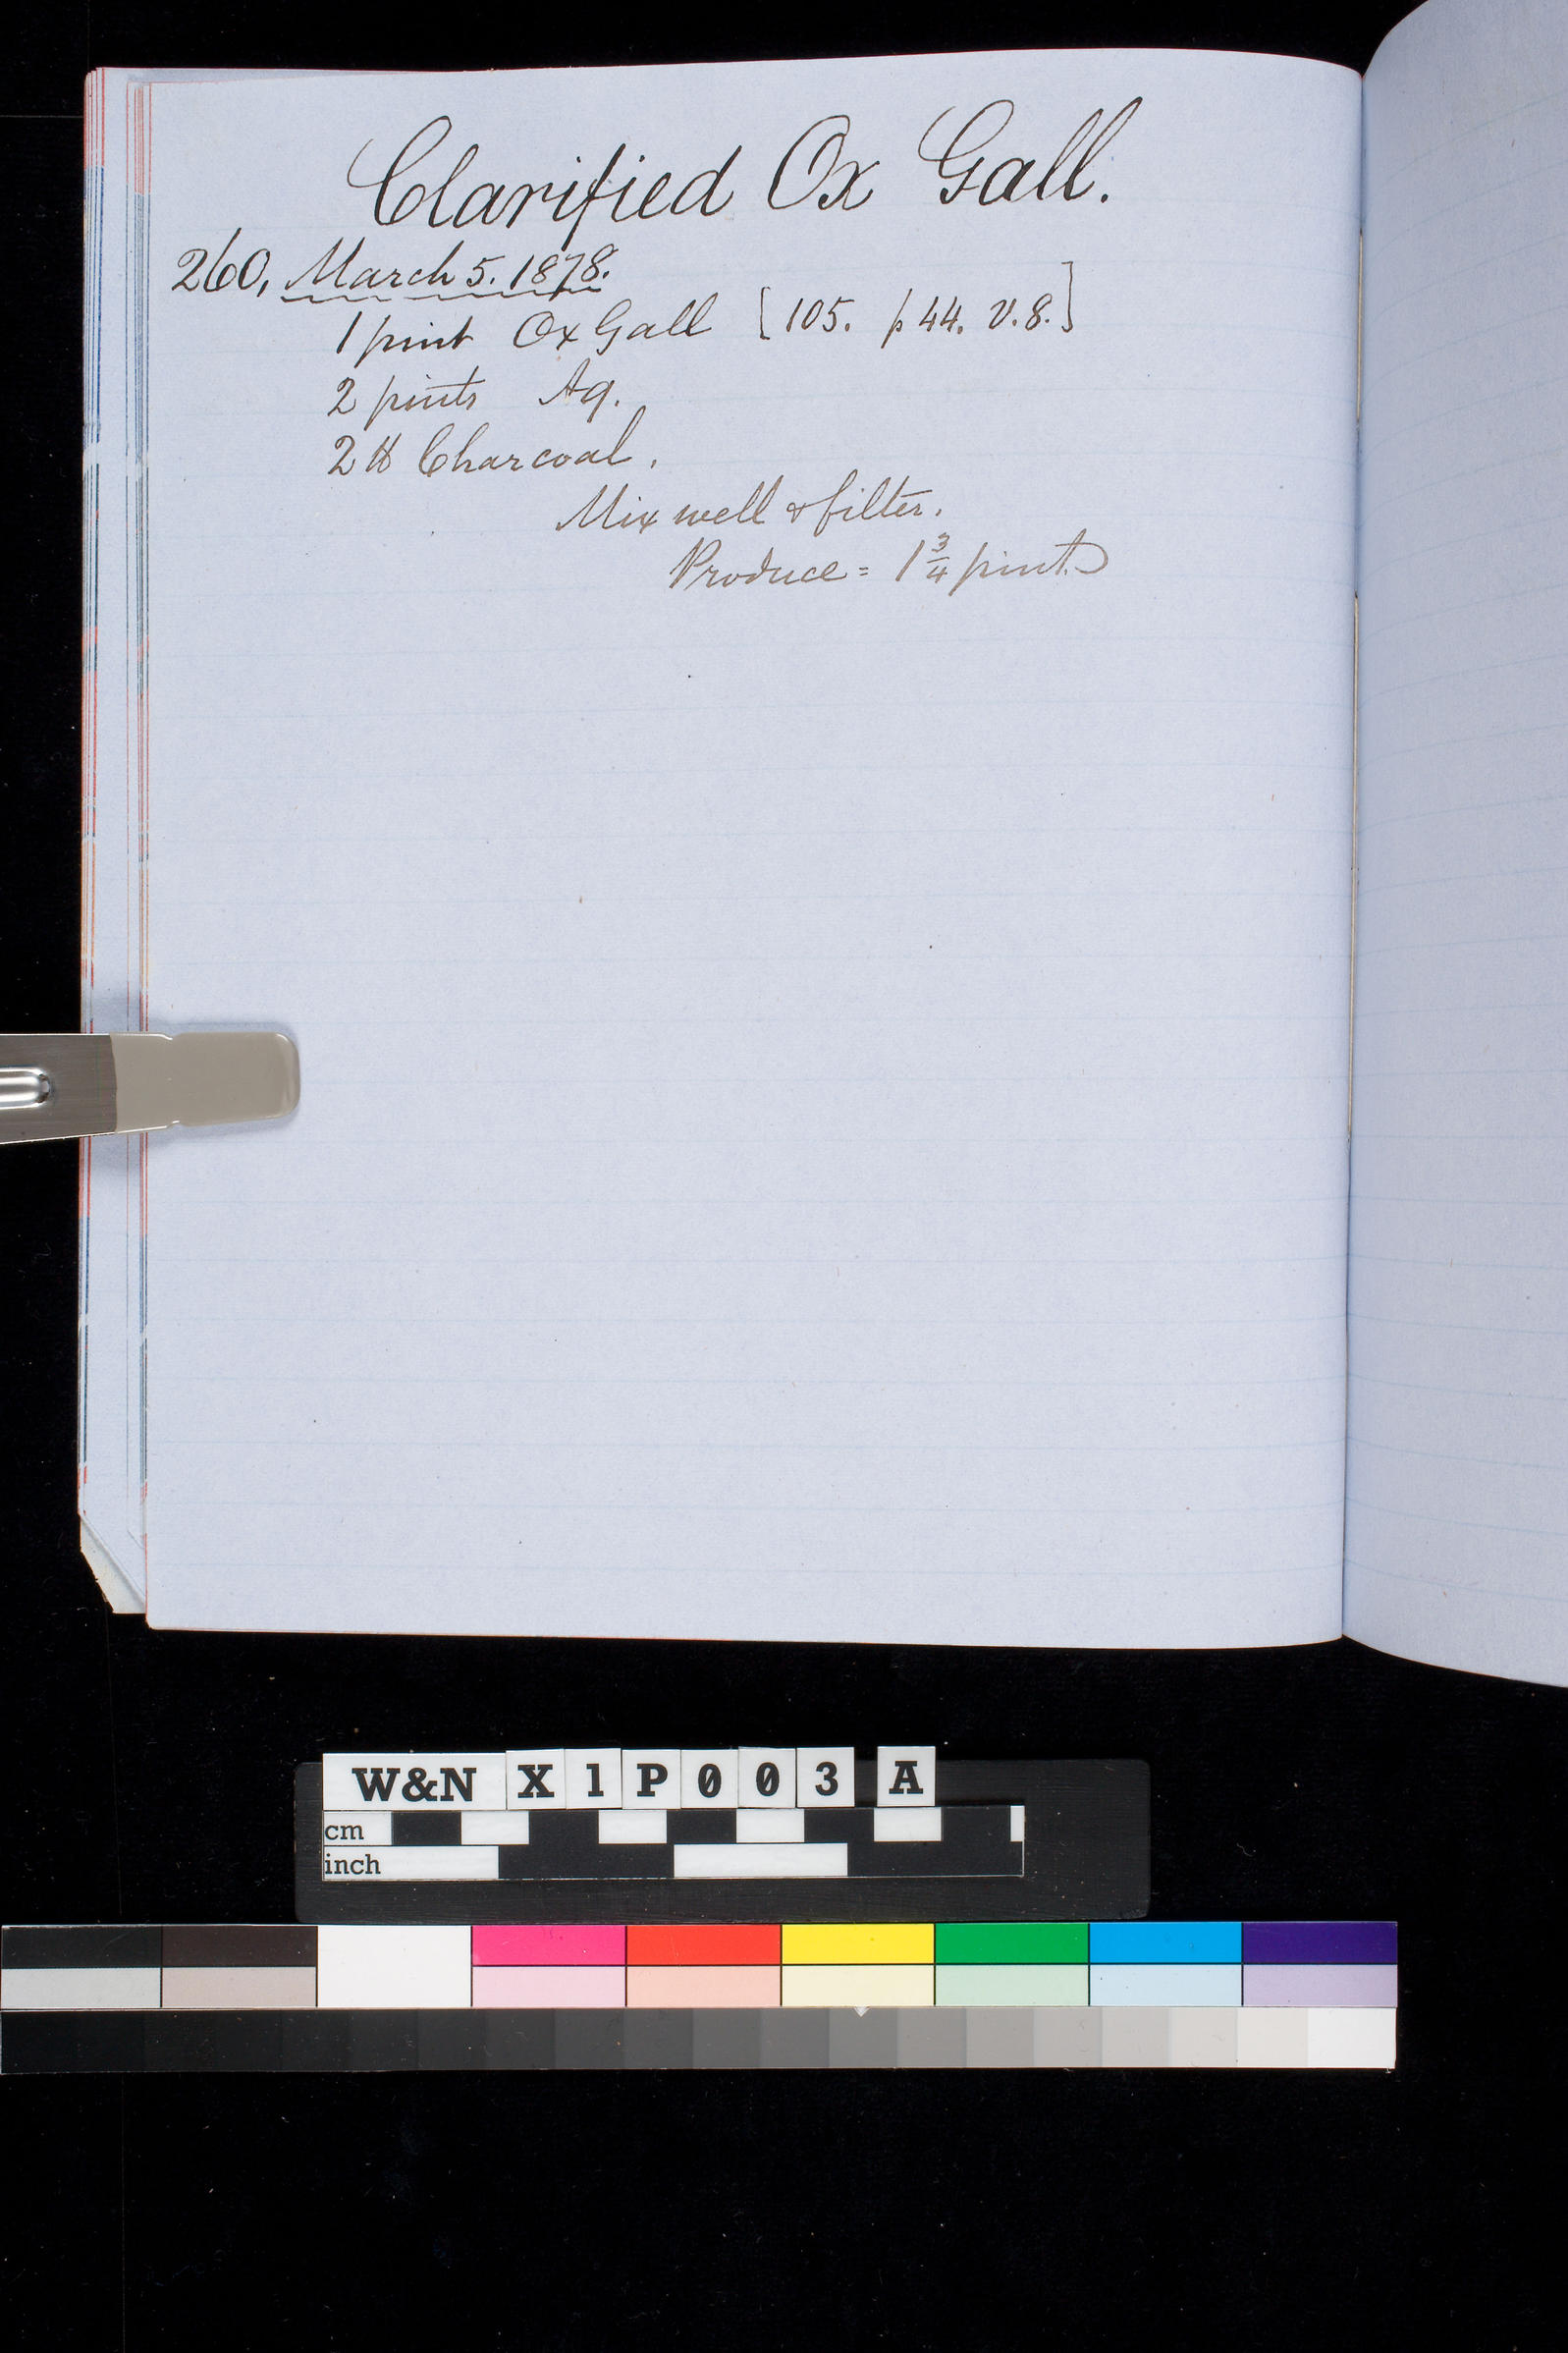 Clarified Ox Gall.
260, March 5. 1878.
1 pint Ox Gall [105. p 44. V.8.]
2 pints Aq.
2 ℔ Charcoal.
Mix well & filter.
Produce = 1 3/4 pint.
W&N X1P003 A
cm
inch